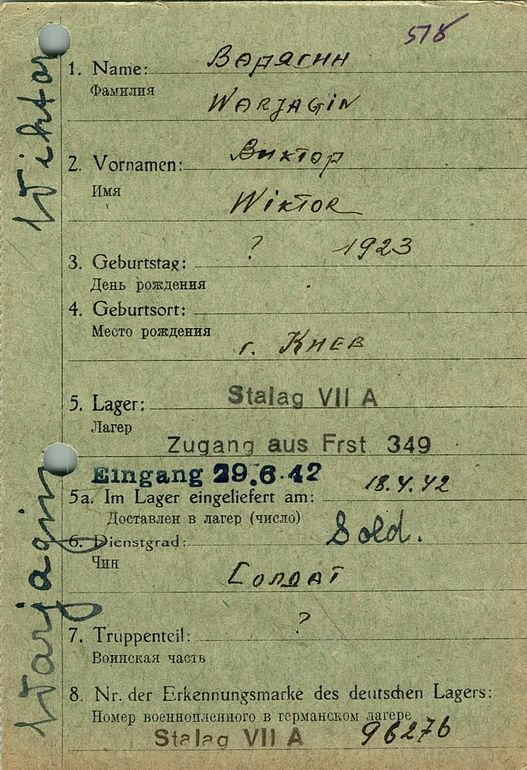 518
1. Name: Варягин
Фамилия
WARJAGIN
2. Vornamen: Виктор
Имя
WIKTOR
3. Geburtstag: ? 1923
День рождения
4. Geburtsort:
Место рождения
г. Киев
5. Lager: Stalag VII A
Лагер
Zugang aus Frst 349
Eingang 29.6.42
5a. Im Lager eingeliefert am: 18.4.42
Доставлен в лагер (число)
6. Dienstgrad: Sold.
Чин
Солдат
7. Truppenteil: ?
Воинская часть
8. Nr. der Erkennungsmarke des deutschen Lagers:
Номер военнопленного в германском лагере
Stalag VII A 96276
Warjagin Wiktor